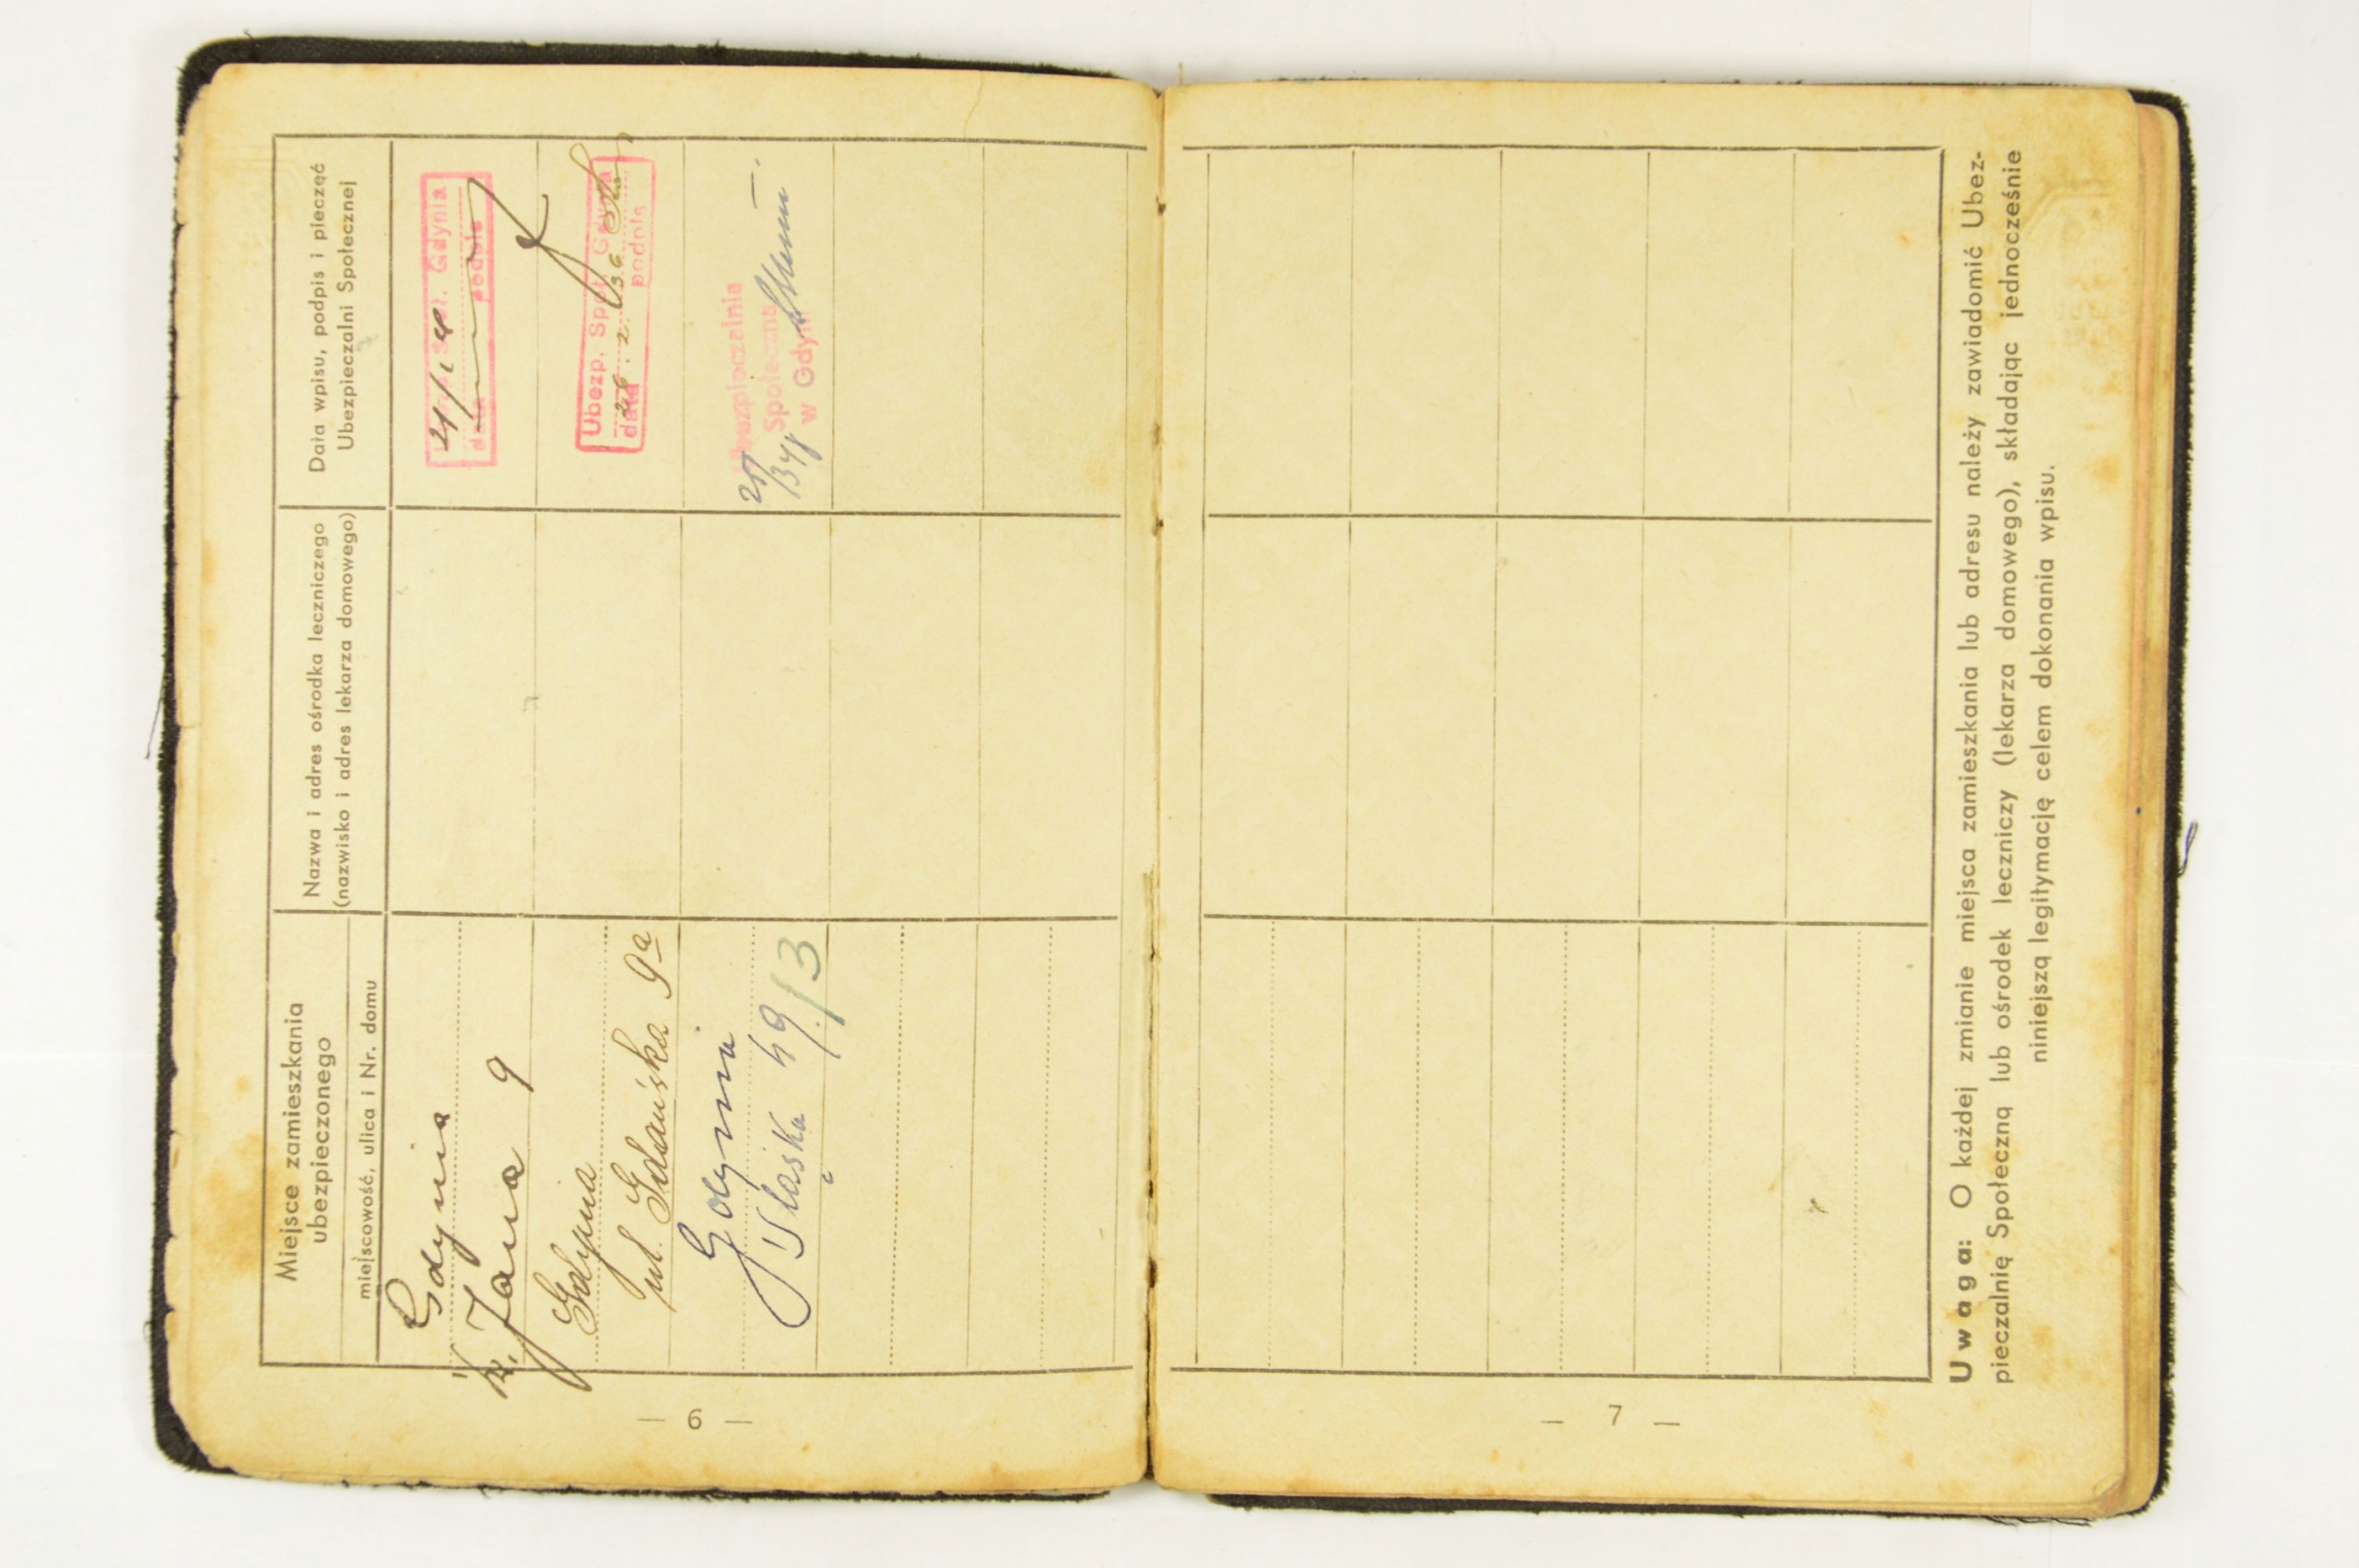 Miejsce zamieszkania
ubezpieczonego
miejscowość, ulica i Nr. domu
Nazwa i adres ośrodka leczniczego
(nazwisko i adres lekarza domowego)
Data wpisu, podpis i pieczęć
Ubezpieczalni Społecznej
Gdynia
Jana 9
Gdynia
data podpis
Gdynia
ul. Gdańska 9a
Ubezp. Społ. Gdynia
data podpis
Gdynia
Śląska 49/3
Ubezpieczalnia
Społeczna
w Gdyni
— 6 —
Uwaga: O każdej zmianie miejsca zamieszkania lub adresu należy zawiadomić Ubez-
pieczalnię Społeczną lub ośrodek leczniczy (lekarza domowego), składając jednocześnie
niniejszą legitymację celem dokonania wpisu.
— 7 —